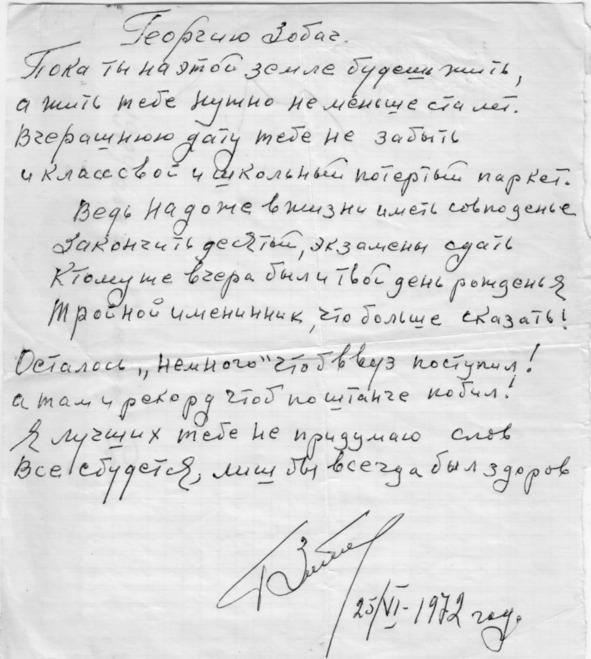 Георгию Зобач.
Пока ты на этой земле будешь жить,
а жить тебе нужно не меньше ста лет.
Вчерашнюю дату тебе не забыть
и классвой и школьный потертый паркет.
Ведь надо же в жизни иметь совподенье
Закончить десятый, экзамены сдать
К тому же вчера был и твой день рожденья
Тройной именинник, что больше сказать!
Осталось „немного" чтоб в вуз поступил!
а там и рекорд чтоб по штанге побил!
Я лучших тебе не придумаю слов
Все сбудется, лиш бы всегда был здоров
25/VI-1972 год.